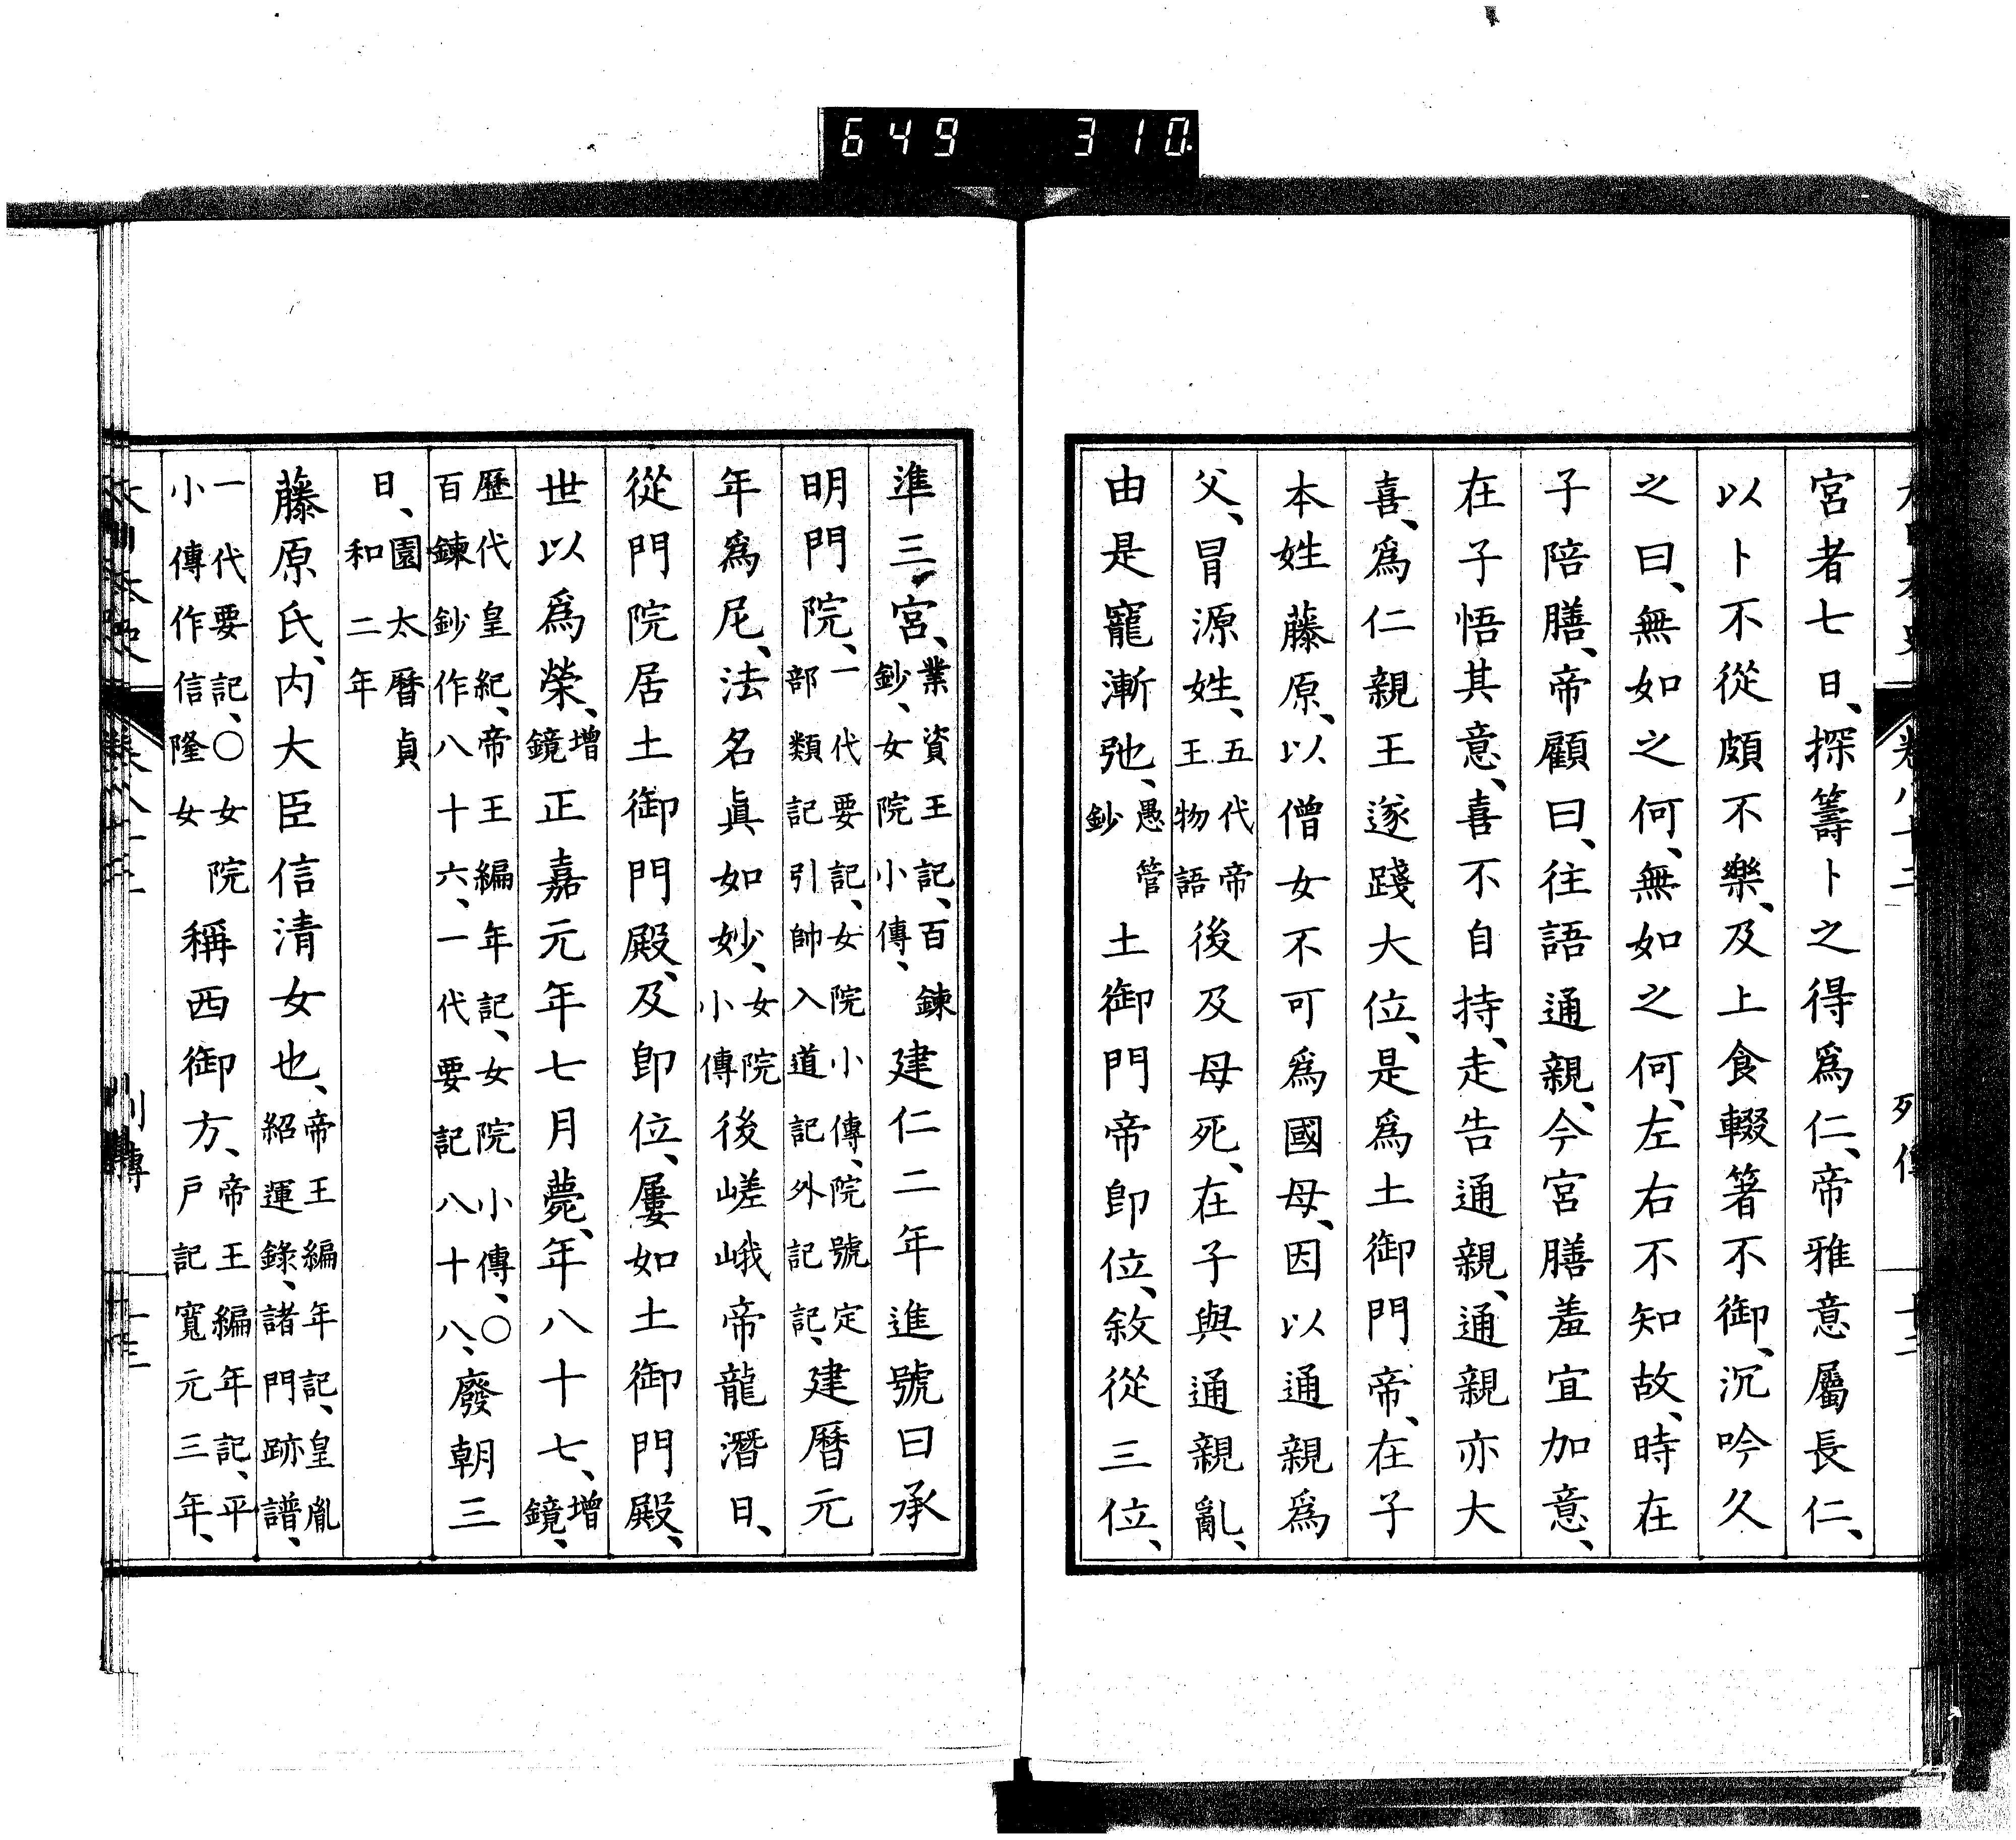 649 310
宮者七日、探籌卜之得爲仁、帝雅意屬長仁、
以卜不從頗不樂、及上食輟箸不御、沉吟久
之曰、無如之何、無如之何、左右不知故、時在
子陪膳、帝顧曰、往語通親、今宮膳羞宜加意、
在子悟其意、喜不自持、走告通親、通親亦大
喜、爲仁親王遂踐大位、是爲土御門帝、在子
本姓藤原、以僧女不可爲國母、因以通親爲
父、冒源姓、五代帝王物語後及母死、在子與通親亂、
由是寵漸弛、愚管鈔土御門帝卽位、敘從三位、
準三宮、業資王記、百鍊鈔、女院小傳、建仁二年進號曰承
明門院、一代要記、女院小傳、院號定部類記引帥入道記外記記、建曆元
年爲尼、法名眞如妙、女院小傳後嵯峨帝龍潛日、
從門院居土御門殿、及卽位、屢如土御門殿、
世以爲榮、增鏡正嘉元年七月薨、年八十七、增鏡、
歷代皇紀、帝王編年記、女院小傳、○百鍊鈔作八十六、一代要記八十八、廢朝三
日、園太曆貞和二年
藤原氏、内大臣信清女也、帝王編年記、皇胤紹運錄、諸門跡譜、
一代要記、○女院小傳作信隆女稱西御方、帝王編年記、平戸記寬元三年、